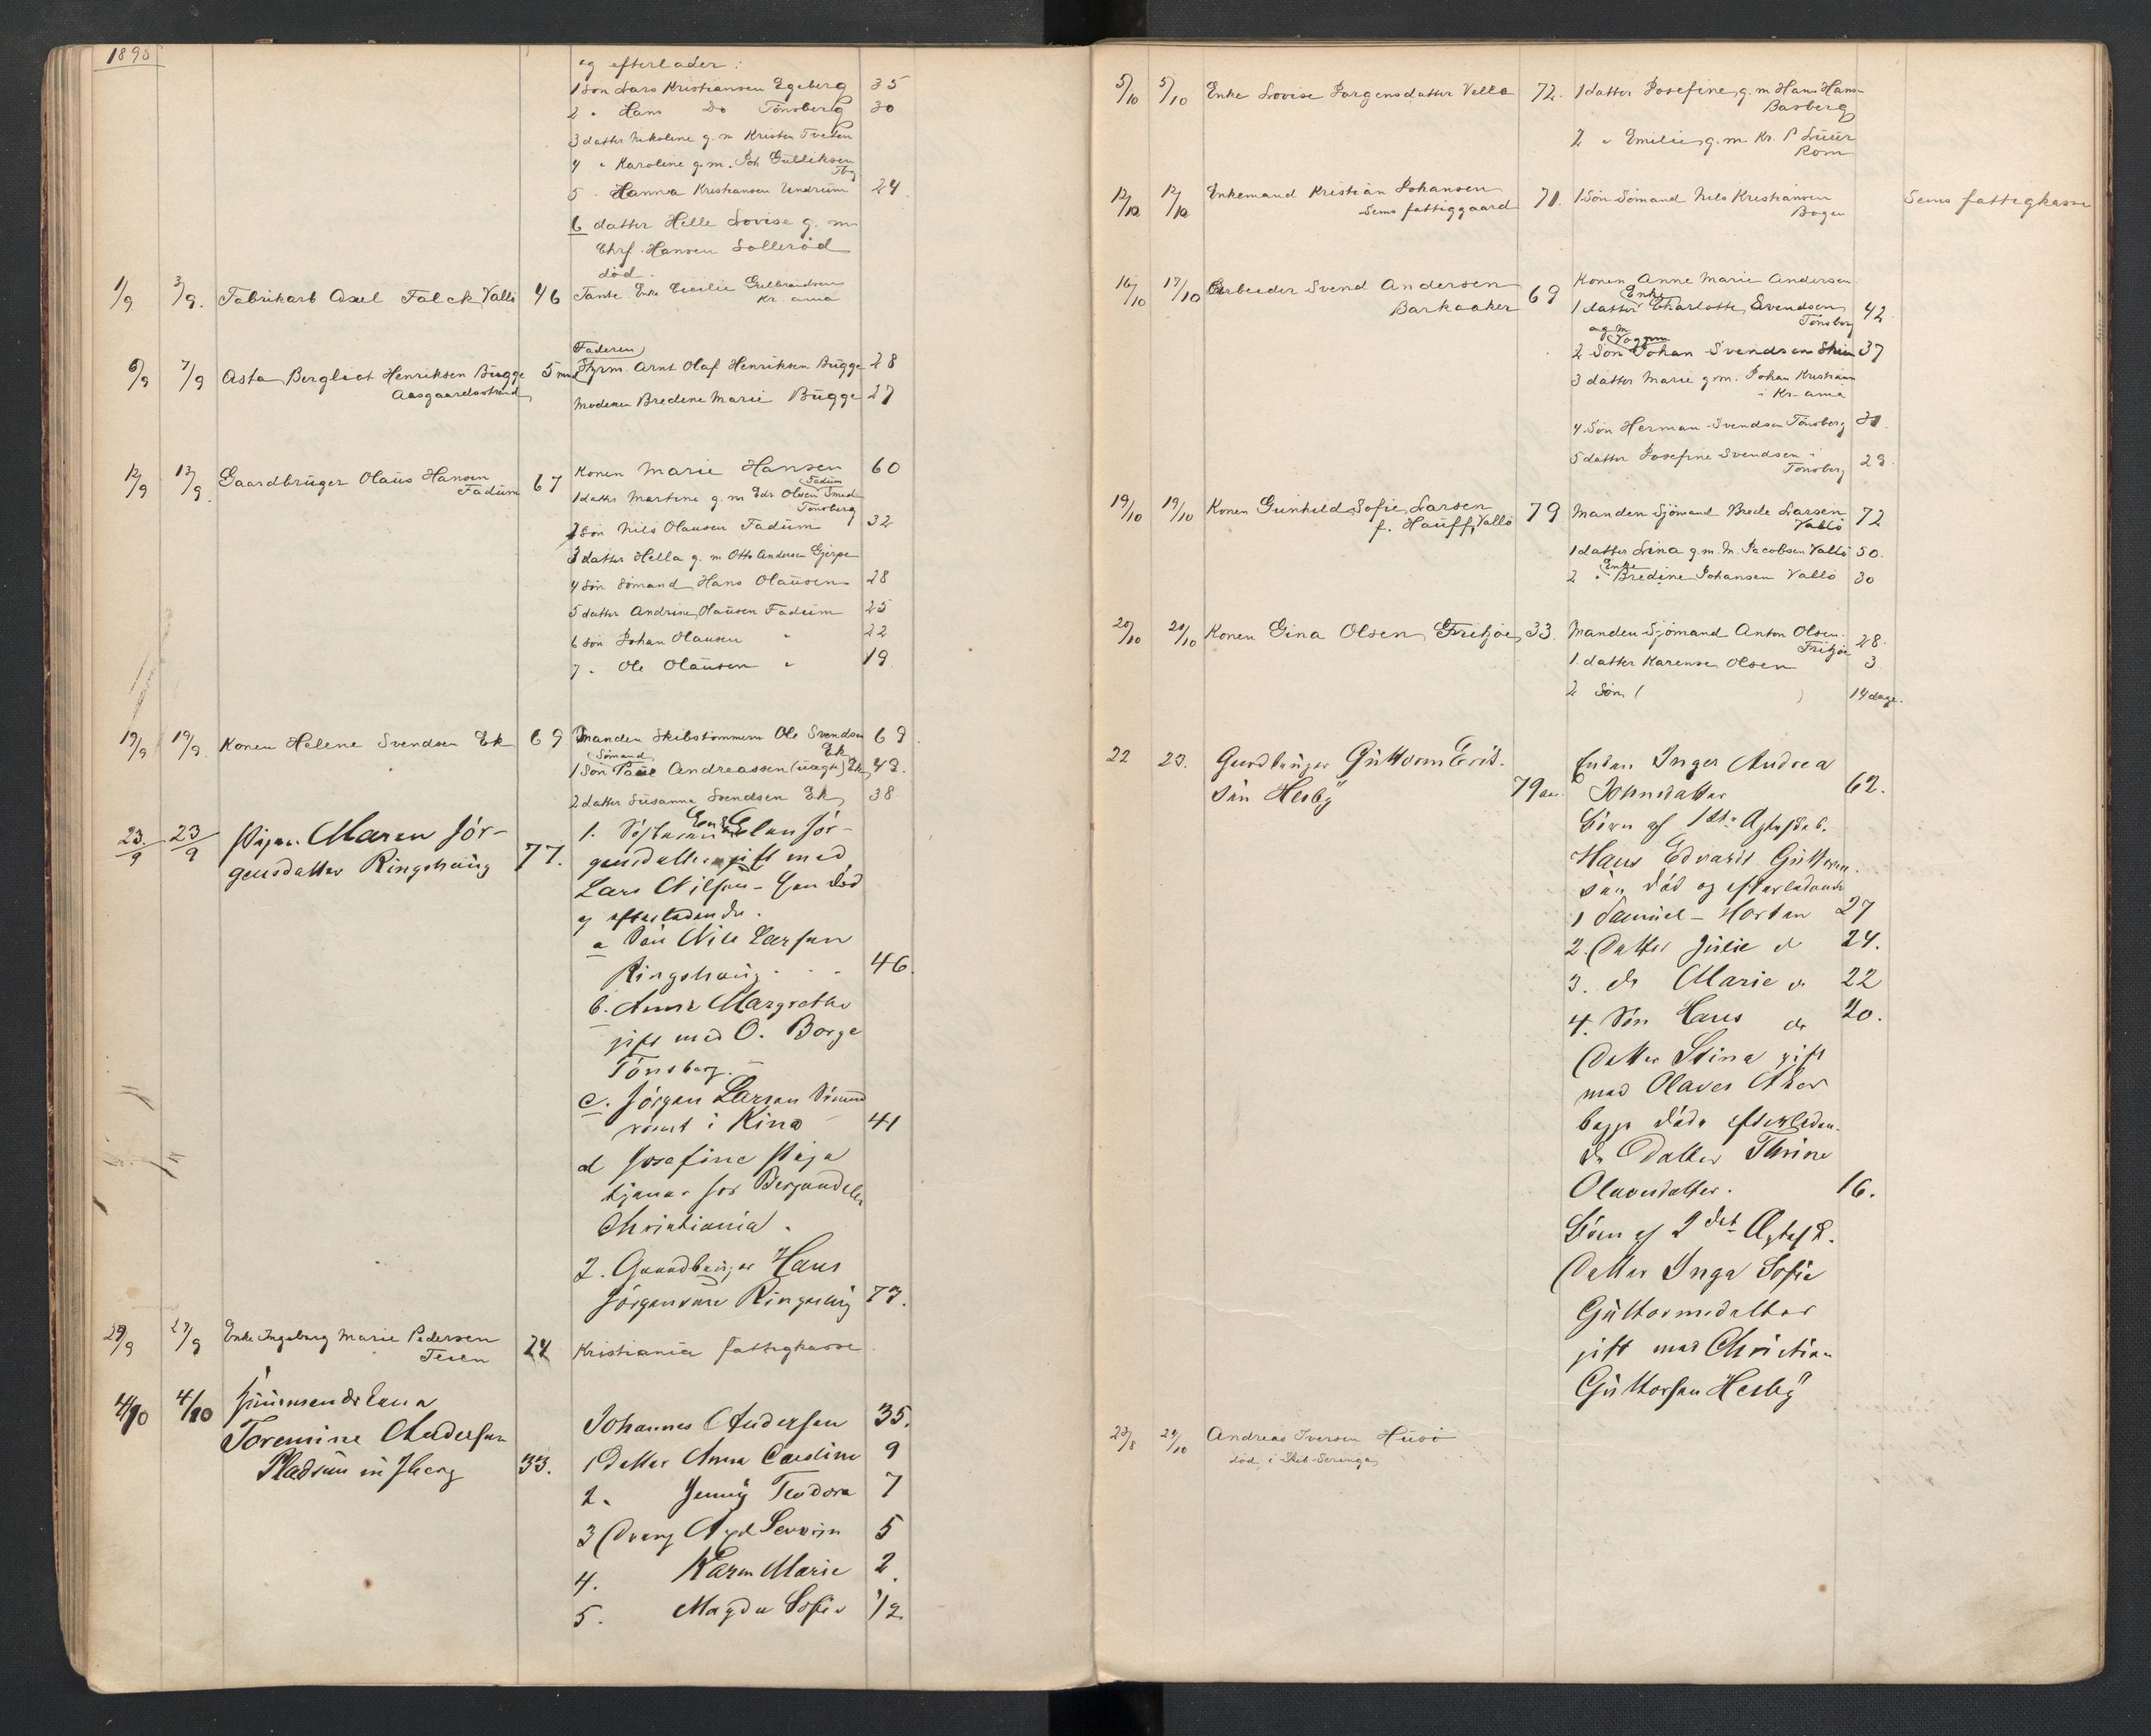 1895
og efterlader:
1 Søn Lars Kristiansen Egeberg 35
2 " Hans Do Tönsberg 30
3 datter Nikoline g. m Kristen Tveden
4 " Karoline g. m. Joh Gulliksen Tbg
5 " Hanna Kristiansen Undrum 24
6 datter Helle Lovise g. m
Chrf. Hansen Solleröd
död.
1/9 3/9. Fabrikarb Axel Falck Vallö 46 Tante. Enke Cecilie Gulbrandsen
Kr. ania
6/9 7/9 Asta Bergliot Henriksen Bugge 5 mnd
Aasgaardsstrand
Faderen
Styrm. Arnt Olaf Henriksen Bugge 28
Moderen Bredine Marie Bugge 27
12/9 13/9. Gaardbruger Olaus Hansen
Fadum 67
Konen Marie Hansen 60
Fadum
1 datter Martine g. m Edv Olsen Smed
Tönsberg
2 Søn Nils Olausen Fadum 32
3 datter Hella g. m Otto Andersen Gjerpe
4 Søn Sömand Hans Olausen 28
5 datter Andrine Olausen Fadum 25
6 Søn Johan Olausen " 22
7 " Ole Olausen " 19
19/9 19/9. Konen Helene Svendsen Ek 69 Manden Skibstömmerm Ole Svendsen 69
Ek
Sömand
1 Søn Paul Andreassen (uægte) Ek 43.
2 datter Susanne Svendsen Ek 38
23./9 23/9 Pigen Maren Jör-
gensdatter Ringshaug 77.
1. Sösteren Enke Elen Jör-
gensdatter gift med
Lars Nilsen -
og efterladende.
a Sön Nils Larsen
Ringshaug . . - 46.
b. Anne Margrethe
gift med O. Borge
Tönsberg.
c. Jörgen Larsen Sömand
reist i Kina 41
d Josefine Pige
tjener for
Christiania.
2. Gaardbruger Hans
Jörgensen Ringshaug 73.
29/9 29/9 Enke Ingeborg Marie Pedersen
Teien 24 Kristiania fattigkasse
4/10 4/10
Toremine Andersen
33.
Johannes Andersen 35.
1 Datter Anna Caroline 9
2. Jenny Teodora 7
3 Dreng Axel Severin 5
4. Karen Marie 2.
5. Magda Sofie 1/2
5/10 5/10 Enke Lovise Jørgensdatter Vallø 72. 1 datter Josefine g. m Hans Hansen
Basberg
2 " Emilie g. m Kr. P Luur
Rom
12/10 12/10 Enkemand Kristian Johansen
Sems fattiggaard 71. 1 Søn Sömand Nils Kristiansen
Bogen
Sems fattigkasse
16/10 17/10 Arbeider Svend Andersen
Barkaaker 69
Konen Anne Marie Andersen
Enke
1 datter Charlotte Svendsen 42
Tönsberg
2 Søn Johan Svendsen Skien 37
3 datter Marie g m. Johan Kristiansen
i Kr. ania
4 Søn Herman Svendsen Tönsberg 31
5 datter Josefine Svendsen i
Tönsberg 23.
19/10 19/10 Konen Gunhild Sofie Larsen
f. Hauff, Vallö 79 Manden Sjömand Brede Larsen 72
Vallö
1 datter Lina g. m. M. Jacobsen Vallö 50.
Enke
2 " Bredine Johansen Vallö 30
20/10 20/10 Konen Gina Olsen Fritzøe 33. Manden Sjömand Anton Olsen. 28.
Fritzøe
1 datter Karense Olsen 3
2 Søn ( ) 14 dage.
22 23. Gaardbruger Guttorm Erik-
sön Hesby 79 aar.
Enken Inger Andrea
Johnsdatter 62.
Börn af 1ste Ægteskab.
Hans Edvard Guttorm-
sön död og efterladende
1 Samuel - Horten 27
2. Datter Julie do 24.
3. do Marie do 22
4. Sön Hans do 20.
Datter Stina gift
med Olaves Aker
begge döde efterladen-
de Datter Thrine
Olavesdatter. 16.
Börn af 2det Ægtesk.
Datter Inga Sofie
Guttormsdatter
gift med Christian
Guttorsen Hesby
23/8 24/10 Andreas Iversen Husö
död i Skib